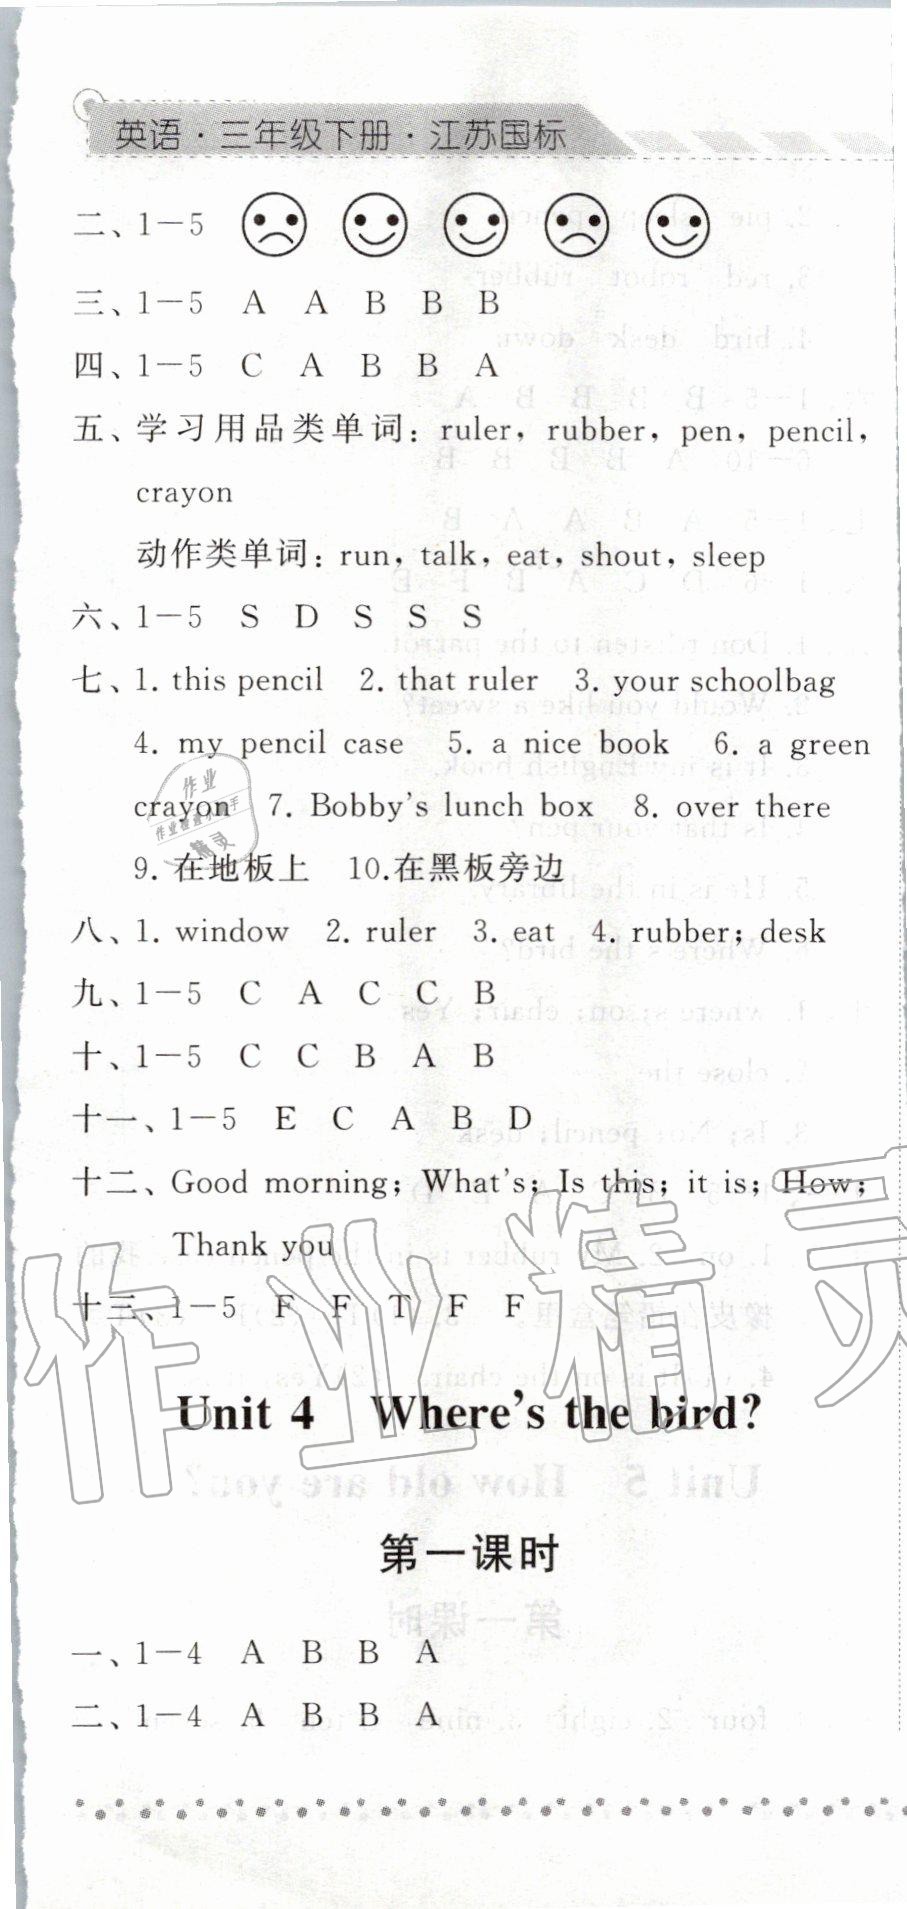 英语·三年级下册·江苏国标
二、1—5
三、1—5 A A B B B
四、1—5 C A B B A
五、学习用品类单词：ruler，rubber，pen，pencil，
crayon
动作类单词：run，talk，eat，shout，sleep
六、1—5 S D S S S
七、1. this pencil 2. that ruler 3. your schoolbag
4. my pencil case 5. a nice book 6. a green
crayon 7. Bobby's lunch box 8. over there
9. 在地板上 10.在黑板旁边
八、1. window 2. ruler 3. eat 4. rubber；desk
九、1—5 C A C C B
十、1—5 C C B A B
十一、1—5 E C A B D
十二、Good morning；What's；Is this；it is；How；
Thank you
十三、1—5 F F T F F
作业精灵
Unit 4 Where's the bird?
第一课时
一、1—4 A B B A
二、1—4 A B B A